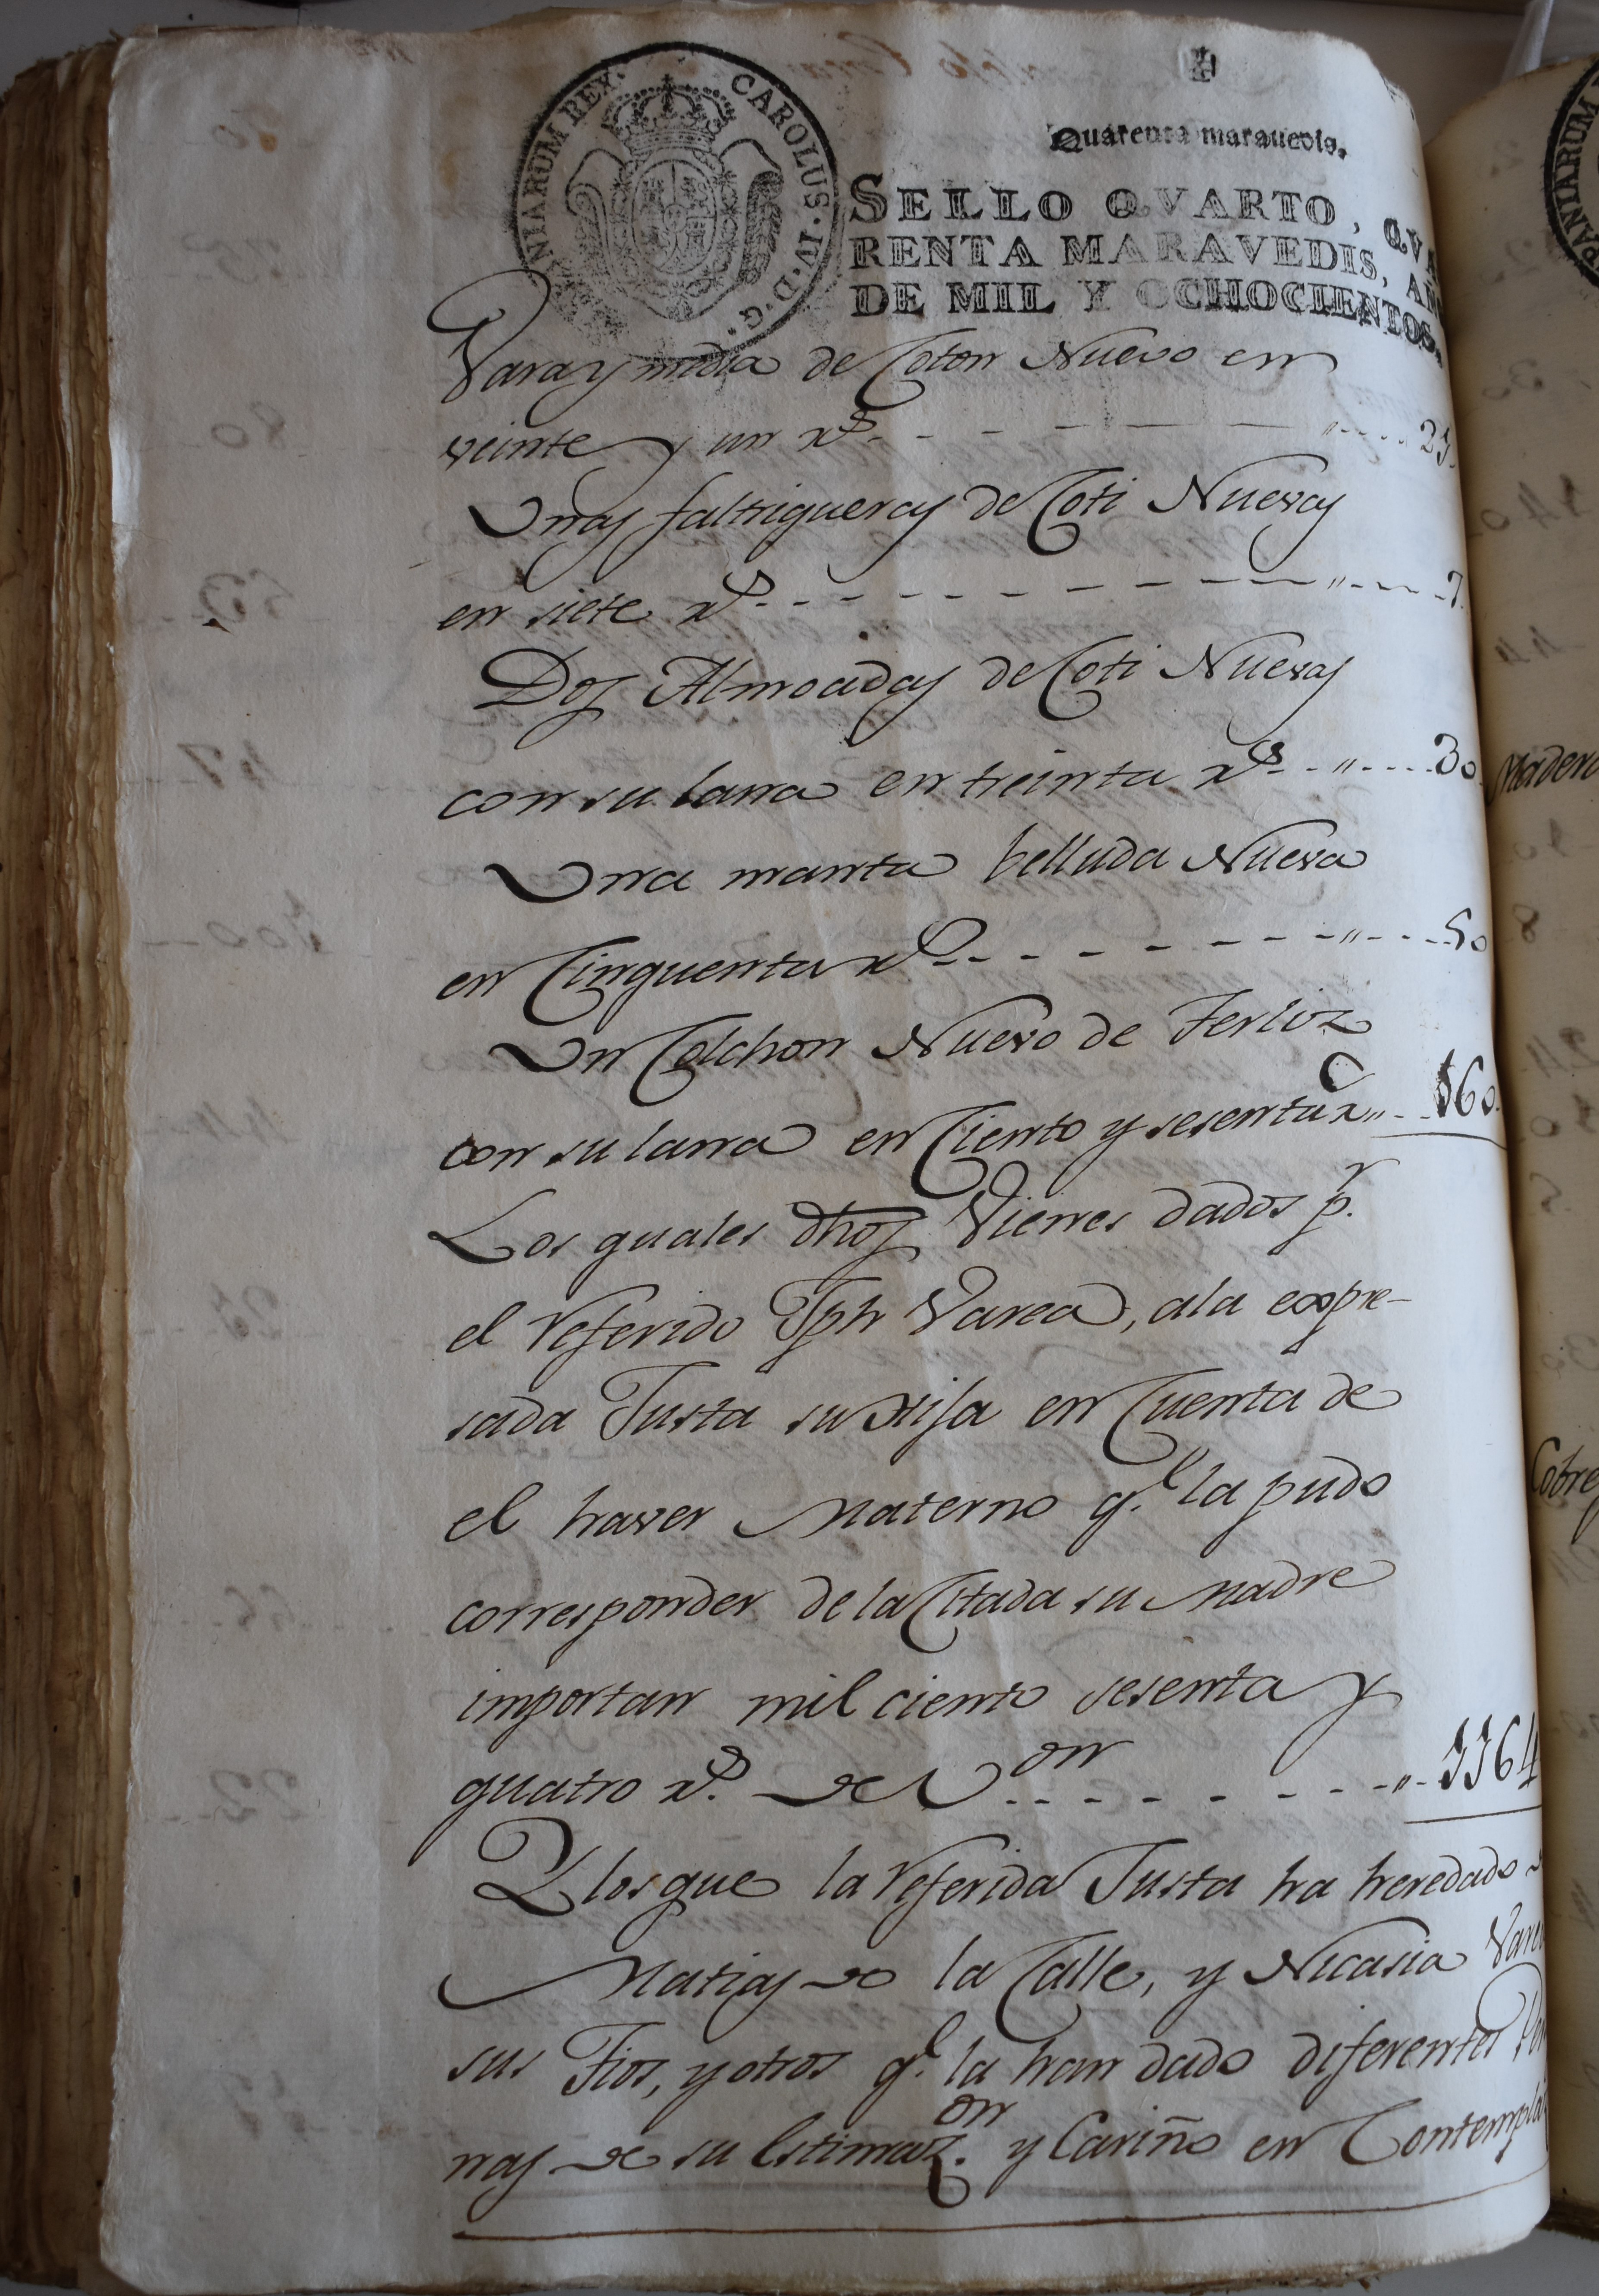 HISPANIARUM REX. CAROLUS. IV. D. G.
Quarenta maravedis.
SELLO QVARTO, QVA
RENTA MARAVEDIS, AÑO
DE MIL Y OCHOCIENTOS.
Vara y media de Coton Nuevo en
veinte y un rs. 21
Unas faltrigueras de Coti Nuevas
en siete rs. 7
Dos Almoadas de Coti Nuevas
con su lana en treinta rs. 30
Una manta belluda Nueva
en Cinquenta rs. 50
Un Colchon Nuevo de Terliz
con su lana en Ciento y sesenta rs. 160
Los quales dhos Vienes dados pr.
el referido Jph Varea, a la expre-
sada Justa su Hija en Cuenta de
el haver Materno qe. la pudo
corresponder de la Citada su Madre
importan mil ciento sesenta y
quatro rs. de Von 1164
Y los que la referida Justa ha heredado
Matias de la Calle, y Nicasia Varea
sus Tios, y otros qe. la han dado diferentes
nas de su Estimazon. y Cariño en Contempla
Madera
Cobre